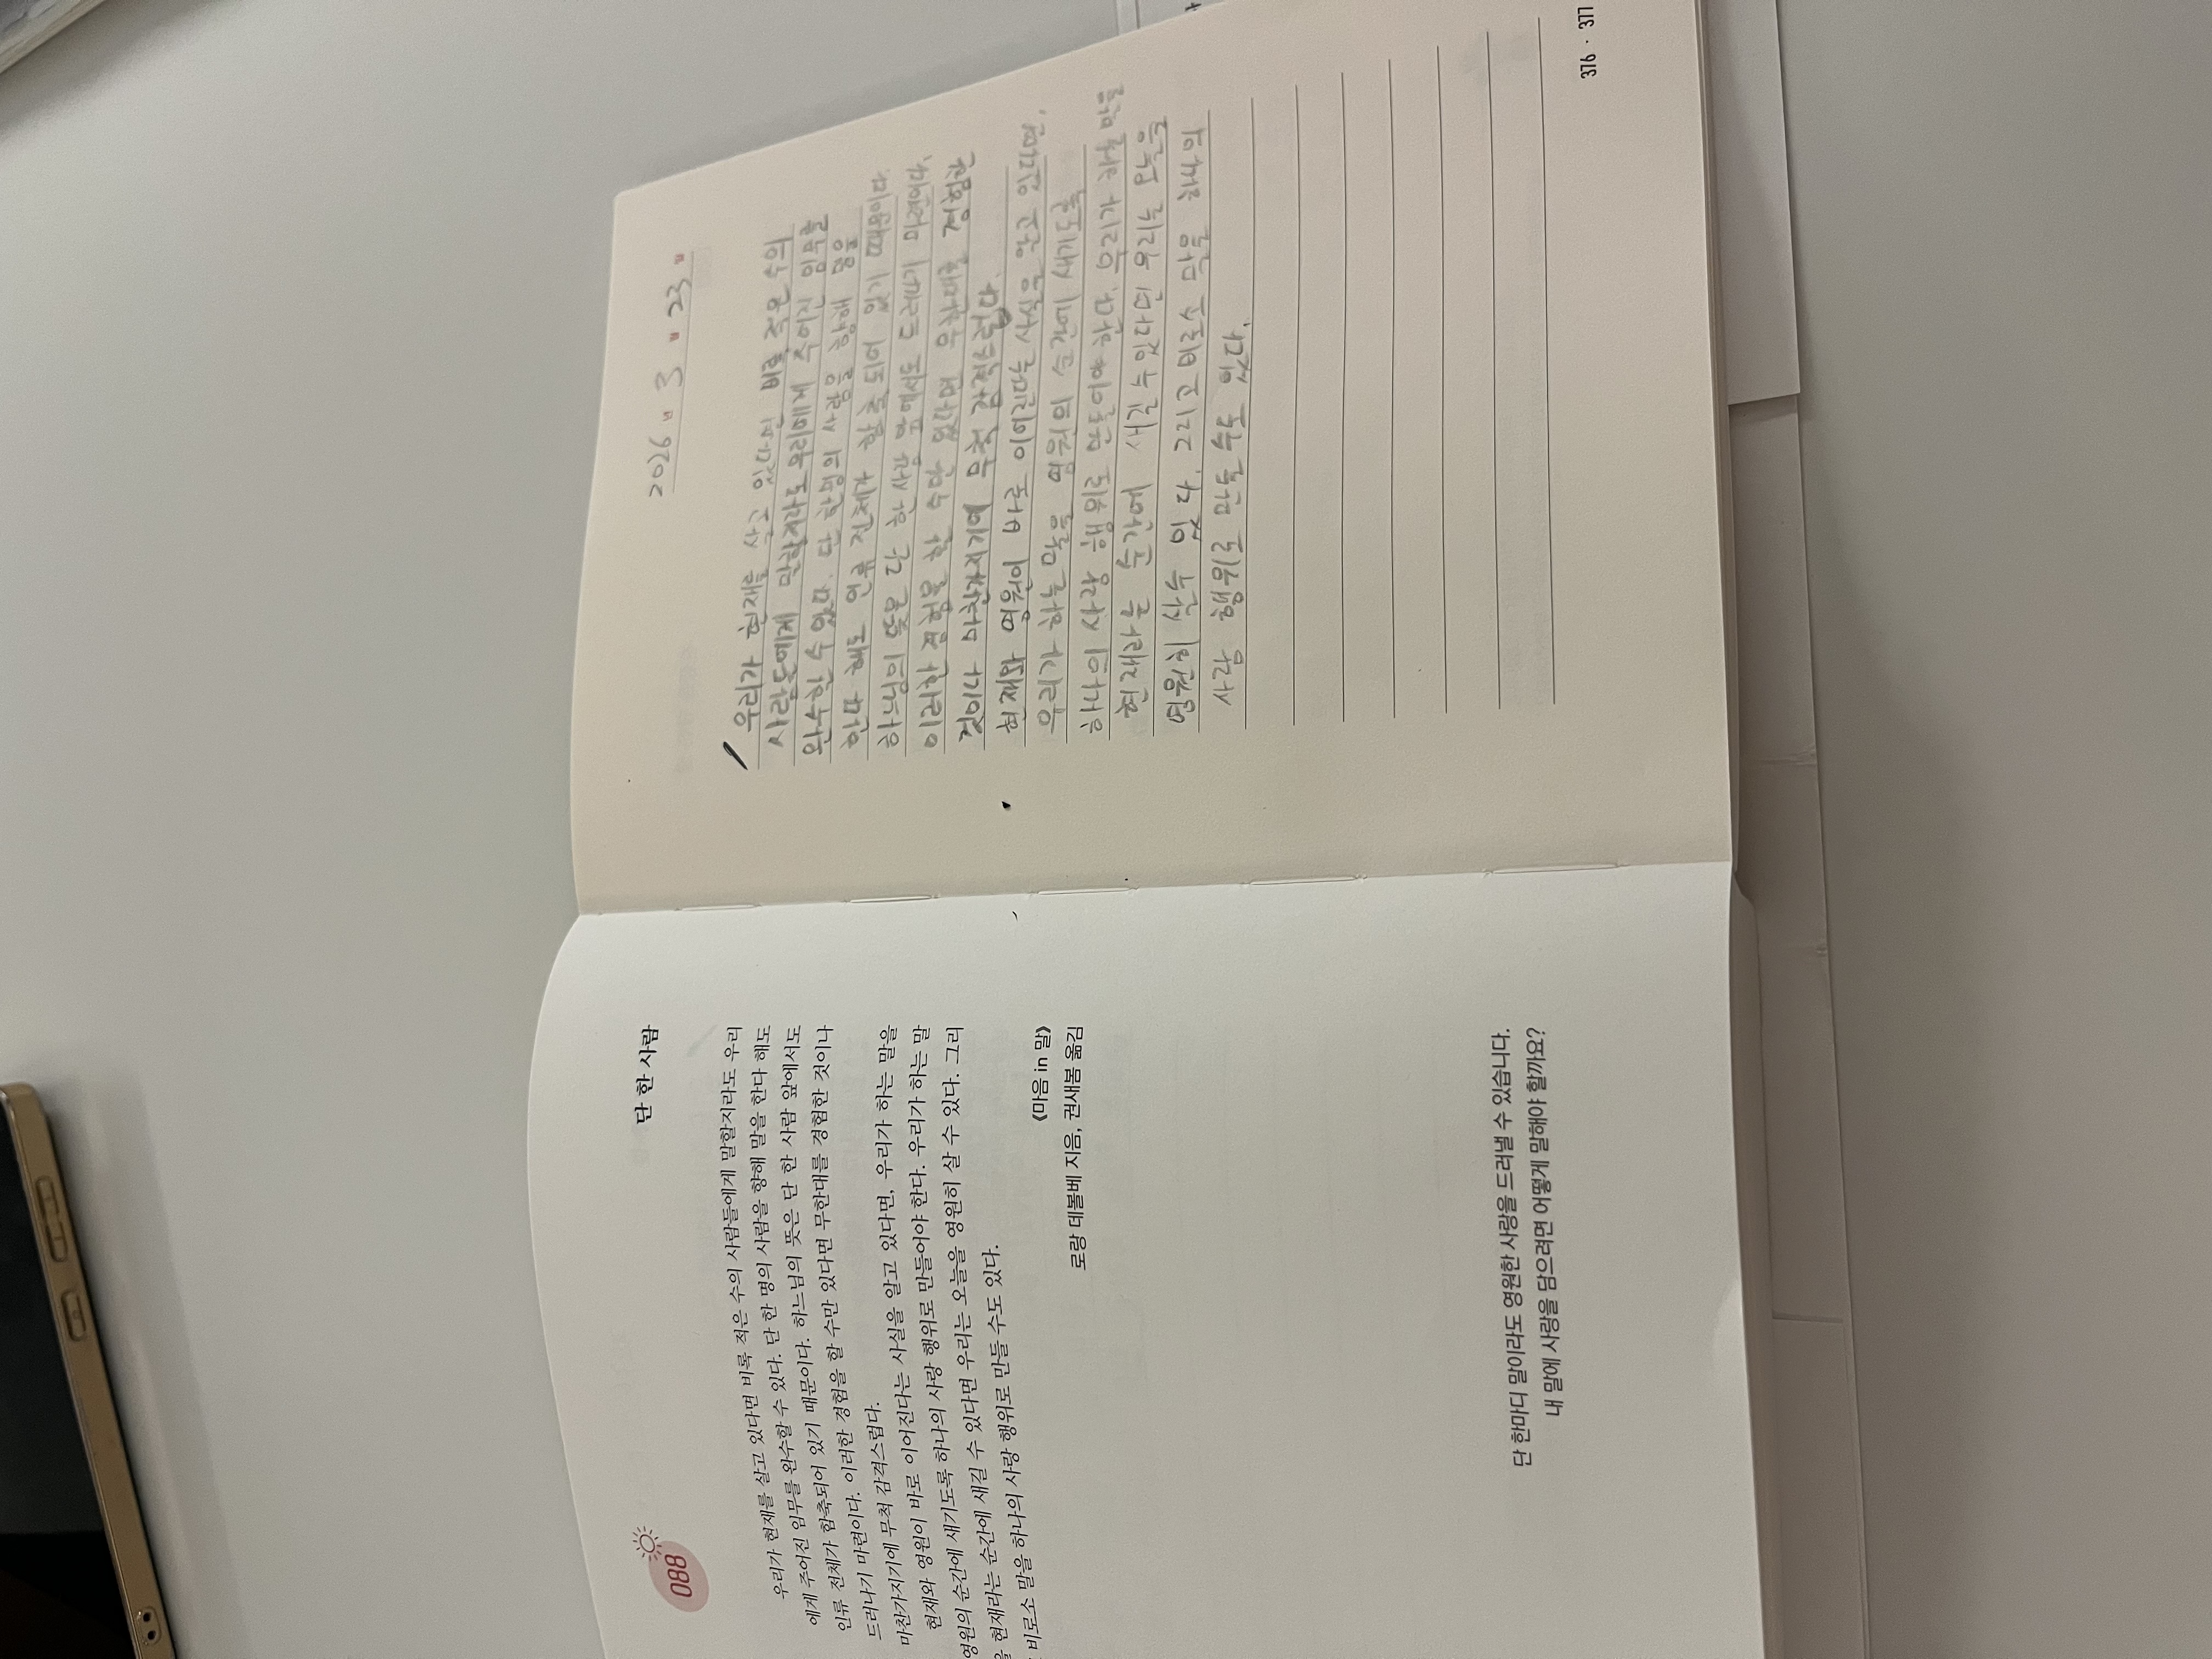 088
단 한 사람
우리가 현재를 살고 있다면 비록 적은 수의 사람들에게 말할지라도 우리
에게 주어진 임무를 완수할 수 있다. 단 한 명의 사람을 향해 말을 한다 해도
인류 전체가 함축되어 있기 때문이다. 하느님의 뜻은 단 한 사람 앞에서도
드러나기 마련이다. 이러한 경험을 할 수만 있다면 무한대를 경험한 것이나
마찬가지기에 무척 감격스럽다.
현재와 영원이 바로 이어진다는 사실을 알고 있다면, 우리가 하는 말을
영원의 순간에 새기도록 하나의 사랑 행위로 만들어야 한다. 우리가 하는 말
을 현재라는 순간에 새길 수 있다면 우리는 오늘을 영원히 살 수 있다. 그리
비로소 말을 하나의 사랑 행위로 만들 수도 있다.
《마음 in 말》
로랑 데볼베 지음, 권새봄 옮김
단 한마디 말이라도 영원한 사랑을 드러낼 수 있습니다.
내 말에 사랑을 담으려면 어떻게 말해야 할까요?
2026 년 3 월 23 일
우리가 현재를 살고 있다면 비록 적은 수의
사람들에게 말할지라도 우리에게 주어진 임무를
완수할 수 있다. 단 한명의 사람을 향해 말을
한다 해도 인류 전체가 함축 되어 있기 때문이다.
하느님의 뜻은 단 한 사람 앞에서도 드러나기 마련이다.
이러한 경험을 할 수만 있다면 무한대를 경험한
것이나 마찬가지기에 무척 감격스럽다.
현재와 영원이 바로 이어진다는 사실을 알고 있다면,
우리가 하는 말을 영원의 순간에 새기도록
하나의 사랑 행위로 만들어야한다. 우리가 하는 말을
현재라는 순간에 새길 수 있다면 우리는 오늘을
영원히 살 수 있다. 그리고 비로소 말을 하나의
사랑 행위로 만들 수도 있다.
376 · 377